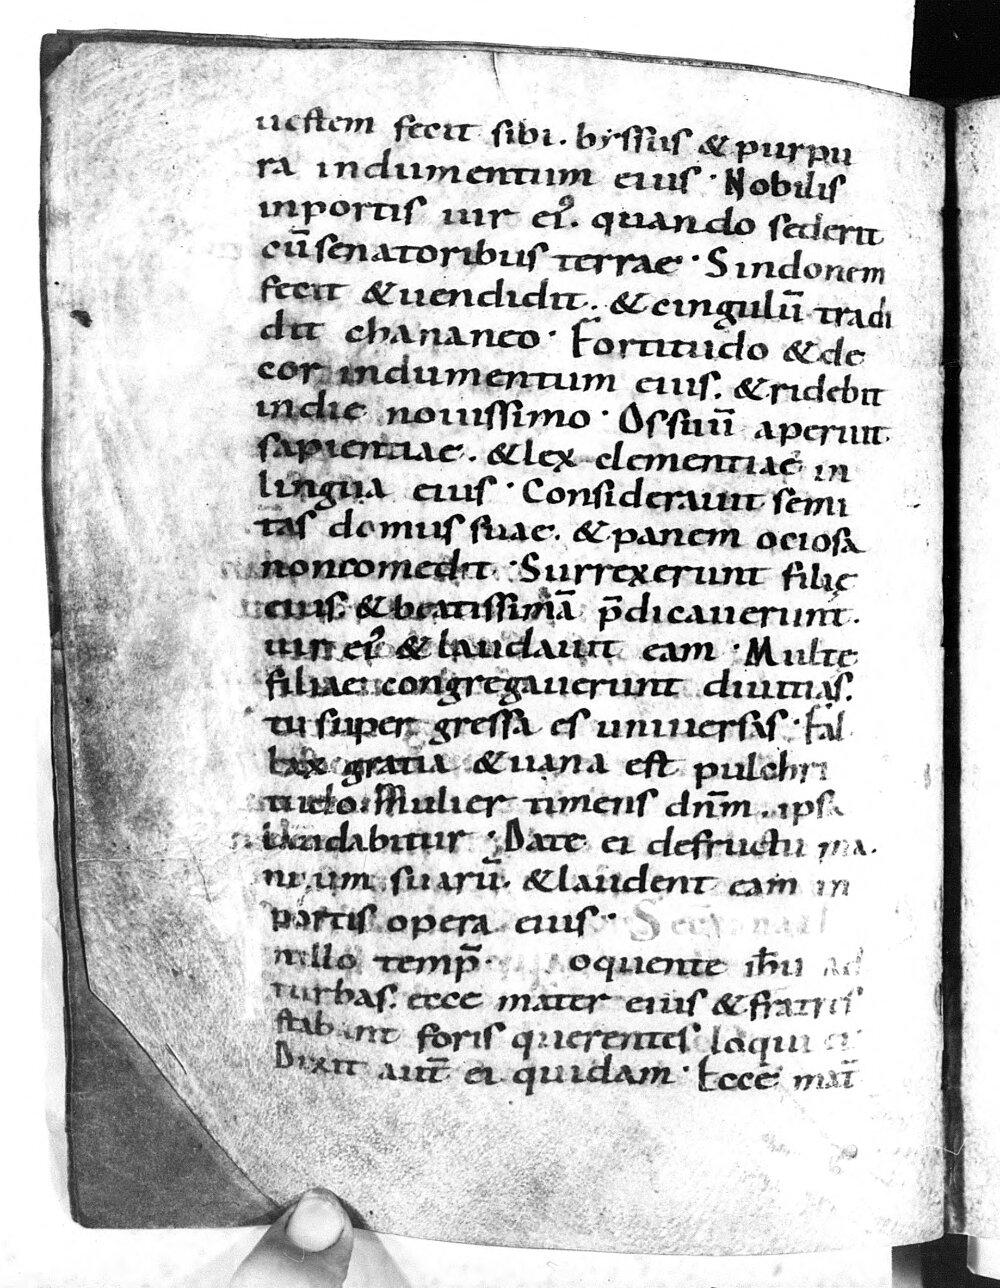 uestem fecit sibi. byssus & purpu
ra indumentum eius · Nobilis
inportis uir ei᷒. quando sederit
cū senatoribus terrae · Sindonem
fecit & uendidit. & cingulū tradi
dit chananeo · Fortitudo & de
cor indumentum eius. & ridebit
indie nouissimo · Os suū aperuit
sapientiae. & lex clementiae in
lingua eius · Considerauit semi
tas domus suae. & panem ociosa
non comedit · Surrexerunt filię
eius. & beatissimā p̄dicauerunt.
uir ei᷒ & laudauit eam · Multe
filiae congregauerunt diuitias.
tu super gressa es uniuersas · Fal
lax gratia & uana est pulchri
tudo. Mulier timens dn̄m. ipsa
laudabitur · Date ei defructu ma
nuum suarū. & laudent eam in
portis opera eius ·
nillo temp̄ oquente ih̄u ad
turbas. ecce mater eius & fratres
stabant foris querentes loqui ei
Dixit aut̄ ei quidam · Ecce mat̄